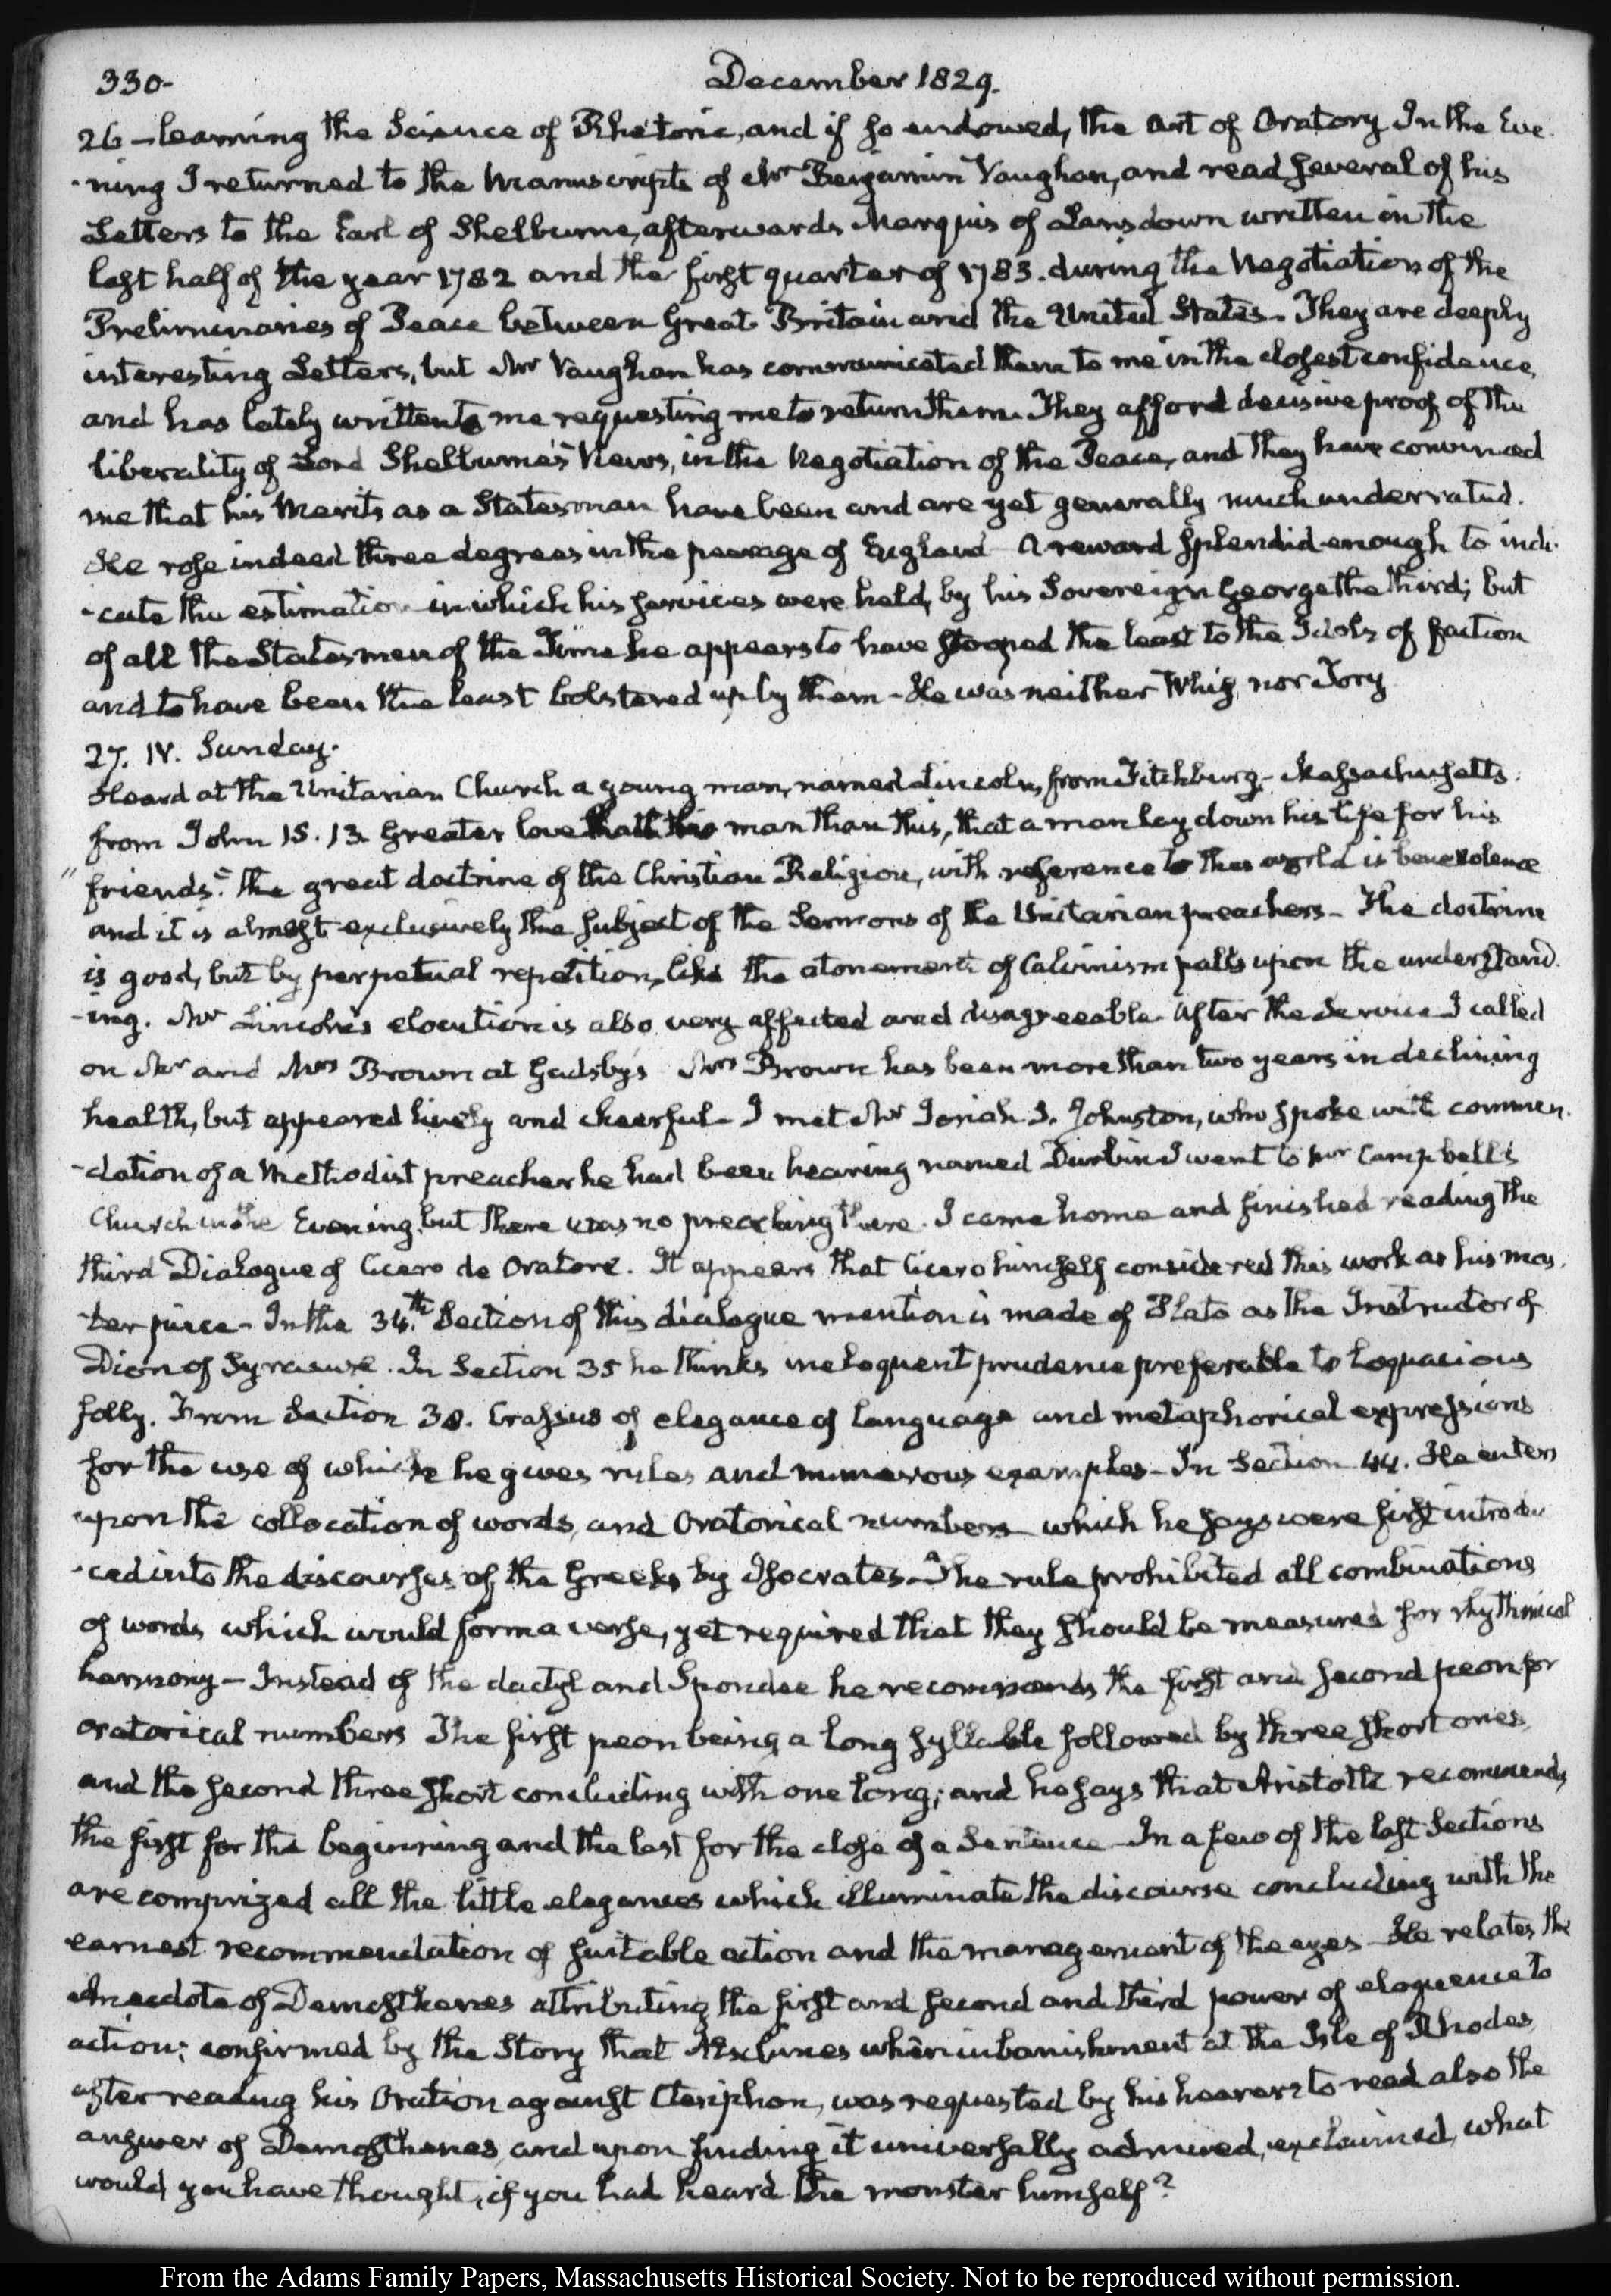 330-
December 1829.
26 - learning the Science of Rhetoric, and if so endowed, the Art of Oratory In the Eve
-ning I returned to the Manuscripts of Mr Benjamin Vaughan, and read several of his
Letters to the Earl of Shelburne, afterwards Marquis of Lansdown written in the
last half of the year 1782 and the first quarter of 1783. during the Negotiation of the
Preliminaries of Peace between Great Britain and the United States - They are deeply
interesting Letters, but Mr Vaughan has communicated them to me in the closest confidence,
and has lately written to me requesting me to return them. They afford decisive proof of the
liberality of Lord Shelburne's Views, in the Negotiation of the Peace, and they have convinced
me that his Merits as a Statesman have been and are yet generally much underrated.
He rose indeed three degrees in the peerage of England - A reward splendid enough to indi-
-cate the estimation in which his services were held, by his Sovereign George the third; but
of all the Statesmen of the Time he appears to have stooped the least to the Idols of faction
and to have been the least bolstered up by them - He was neither Whig nor Tory
27. IV. Sunday.
Heard at the Unitarian Church a young man, named Lincoln, from Fitchburg - Massachusetts.
from John 15. 13. Greater love hath no man than this, that a man lay down his life for his
" friends." The great doctrine of the Christian Religion, with reference to this world is benevolence
and it is almost exclusively the subject of the Sermons of the Unitarian preachers - The doctrine
is good, but by perpetual repetition, like the atonement of Calvinism palls upon the understand
-ing. Mr Lincoln's elocution is also very affected and disagreeable. After the Service I called
on Mr and Mrs Brown at Gadsby's Mrs Brown has been more than two years in declining
health, but appeared lively and cheerful - I met Mr Josiah S. Johnston, who spoke with commen-
-dation of a Methodist preacher he had been hearing named Durbin I went to Mr Campbell's
Church in the Evening, but there was no preaching there. I came home and finished reading the
third Dialogue of Cicero de Oratore. It appears that Cicero himself considered this work as his mas-
-terpiece - In the 34.th Section of this dialogue mention is made of Plato as the Instructor of
Dion of Syracuse. In Section 35 he thinks ineloquent prudence preferable to loquacious
folly. From Section 38. Crassus of elegance of language and metaphorical expressions
for the use of which he gives rules and numerous examples - In Section 44. He enters
upon the collocation of words, and Oratorical numbers which he says were first introdu
-ced into the discourses of the Greeks by Isocrates - The rule prohibited all combinations
of words which would form a verse, yet required that they should be measured for rhythmical
harmony - Instead of the dactyl and Spondee he recommends the first and second peon for
oratorical numbers The first peon being a long syllable followed by three short ones,
and the second three short concluding with one long; and he says that Aristotle recommends
the first for the beginning and the last for the close of a Sentence - In a few of the last Sections
are comprized all the little elegances which illuminate the discourse concluding with the
earnest recommendation of suitable action and the management of the eyes - He relates the
Anecdote of Demosthenes attributing the first and second and third power of eloquence to
action; confirmed by the Story that Æschines when in banishment at the Isle of Rhodes,
after reading his Oration against Ctesiphon, was requested by his hearers to read also the
answer of Demosthenes, and upon finding it universally admired, exclaimed, what
would you have thought, if you had heard the monster himself?
From the Adams Family Papers, Massachusetts Historical Society. Not to be reproduced without permission.